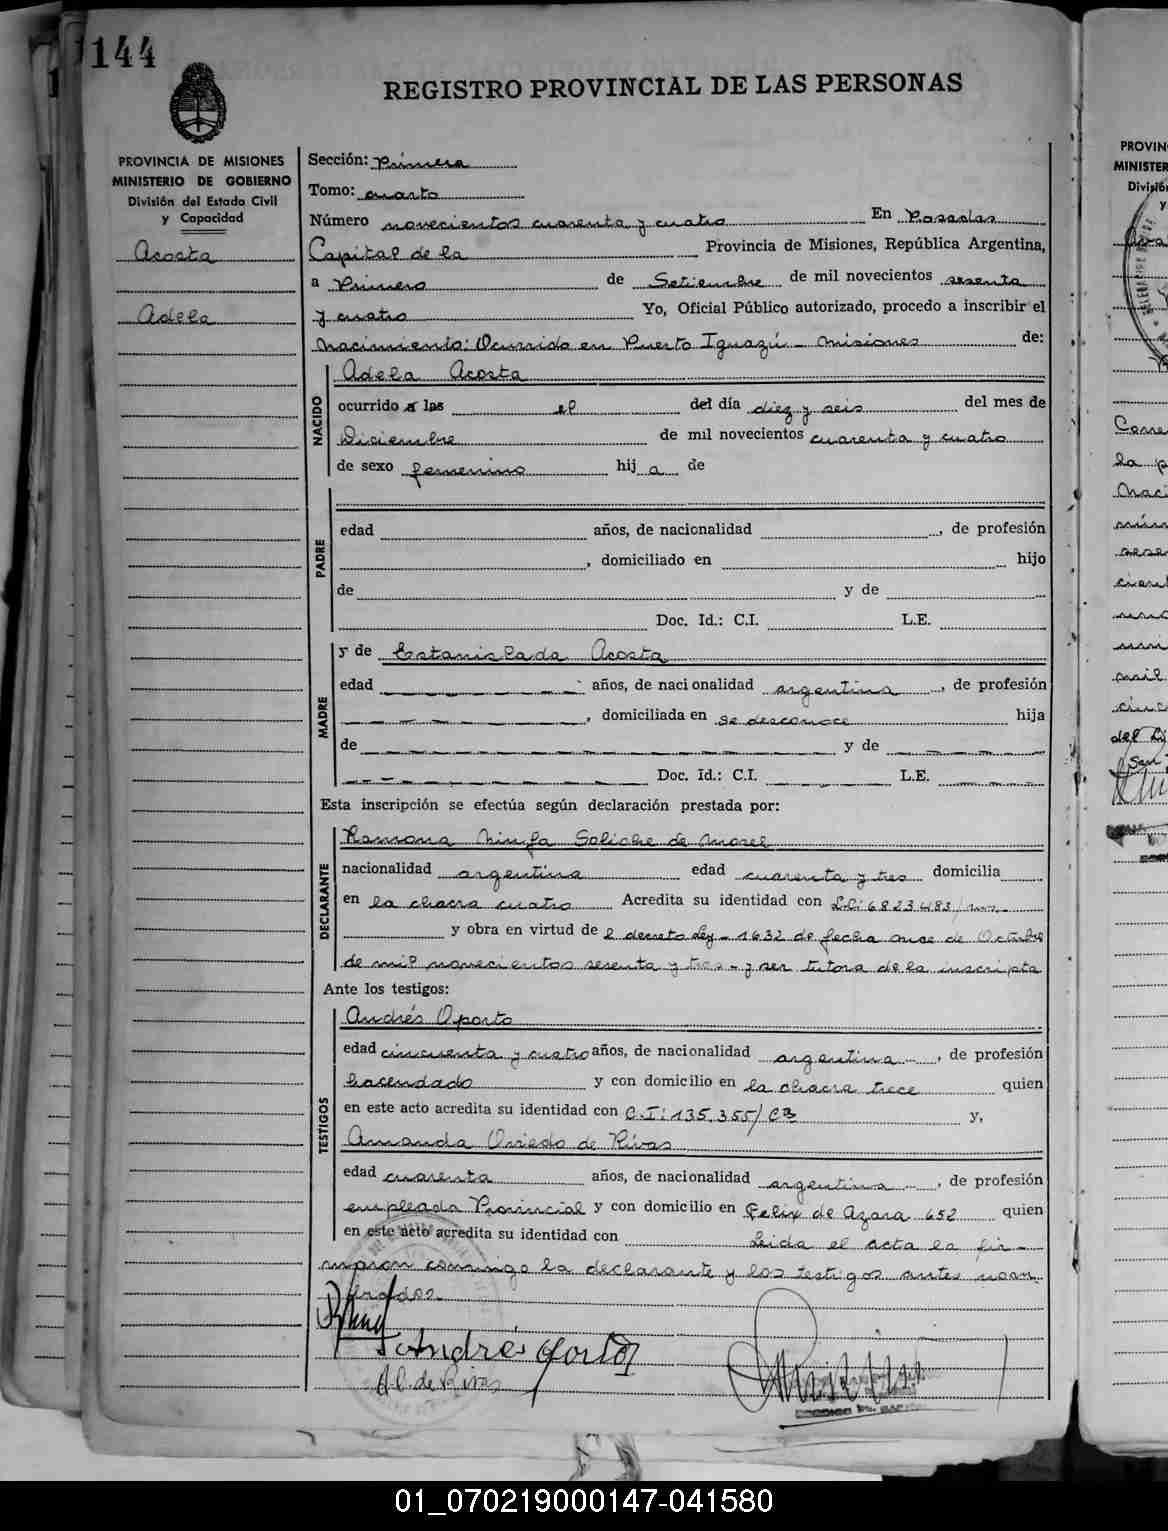 144
REGISTRO PROVINCIAL DE LAS PERSONAS
PROVINCIA DE MISIONES
MINISTERIO DE GOBIERNO
División del Estado Civil
y Capacidad
Acosta
Adela
Sección: Primera
Tomo: cuarto
Número novecientos cuarenta y cuatro En Posadas
Capital de la Provincia de Misiones, República Argentina,
a Primero de Setiembre de mil novecientos sesenta
y cuatro Yo, Oficial Público autorizado, procedo a inscribir el
Nacimiento: Ocurrido en Puerto Iguazú - Misiones de:
NACIDO
Adela Acosta
ocurrido a las el del día diez y seis del mes de
Diciembre de mil novecientos cuarenta y cuatro
de sexo femenino hij a de
PADRE
edad años, de nacionalidad , de profesión
, domiciliado en hijo
de y de
Doc. Id.: C.I. L.E.
MADRE
y de Estanislada Acosta
edad años, de nacionalidad argentina , de profesión
, domiciliada en se desconoce hija
de y de
Doc. Id.: C.I. L.E.
Esta inscripción se efectúa según declaración prestada por:
DECLARANTE
Ramona Ninfa Soliche de Morel
nacionalidad argentina edad cuarenta y tres domicilia
en la chacra cuatro Acredita su identidad con L.C: 6823483/
y obra en virtud de l decreto Ley - 1632 de fecha once de Octubre
de mil novecientos sesenta y tres - y ser tutora de la inscripta
Ante los testigos:
TESTIGOS
Andrés Oporto
edad cincuenta y cuatro años, de nacionalidad argentina , de profesión
hacendado y con domicilio en la chacra trece quien
en este acto acredita su identidad con C.I: 135.355/ y,
Amanda Oviedo de Rivas
edad cuarenta años, de nacionalidad argentina , de profesión
empleada Provincial y con domicilio en Felix de Azara 652 quien
en este acto acredita su identidad con Leida el acta la fir-
maron conmigo la declarante y los testigos antes nom-
brados.
Andrés Oporto
A.O. de Rivas
PROVIN
MINISTER
División
y
del
01_070219000147-041580